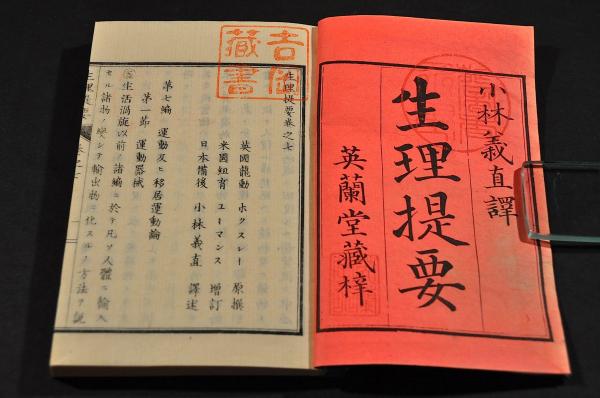 小林義直譯
生理提要
英蘭堂藏梓
生理提要卷之七
英國龍動 ホクスレー 原撰
米國紐育 ユーマンス 増訂
日本備後 小林義直 譯述
第七編 運動及ヒ移居運動論
第一節 運動器械
生活渦旋以前ノ諸編ニ於テ凡ソ人體ニ輸入
セル諸物ノ變シテ輸出物ニ化スルノ方法ヲ説
生理提要
藏書